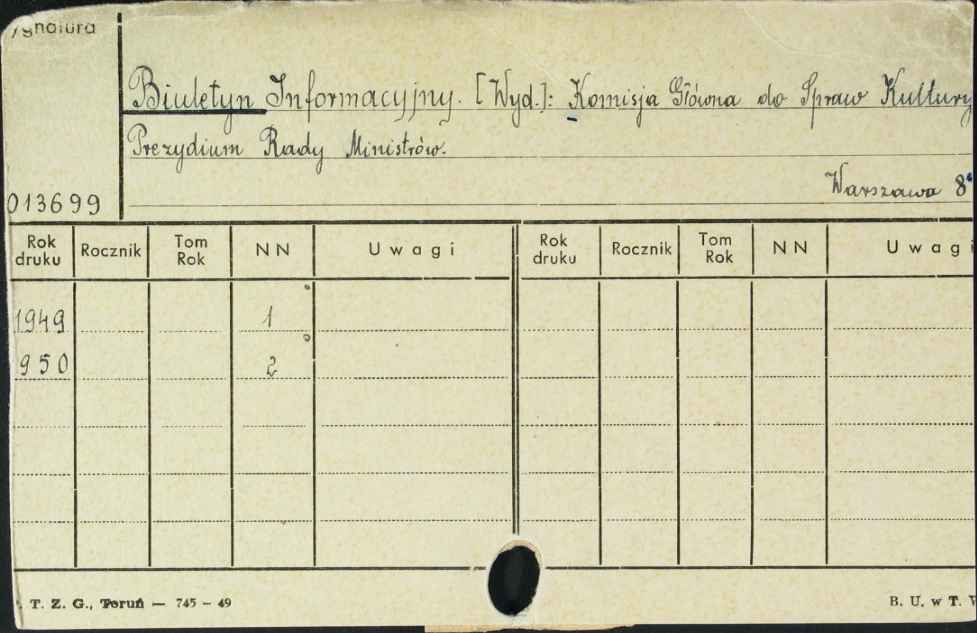 ygnatura
Biuletyn Informacyjny. [Wyd.]: Komisja Główna do Spraw Kultury
Prezydium Rady Ministrów.
Warszawa 8°
013699
Rok druku Rocznik Tom Rok NN Uwagi Rok druku Rocznik Tom Rok NN Uwagi
1949 1
950 2
T. Z. G., Toruń — 745 – 49 B. U. w T.